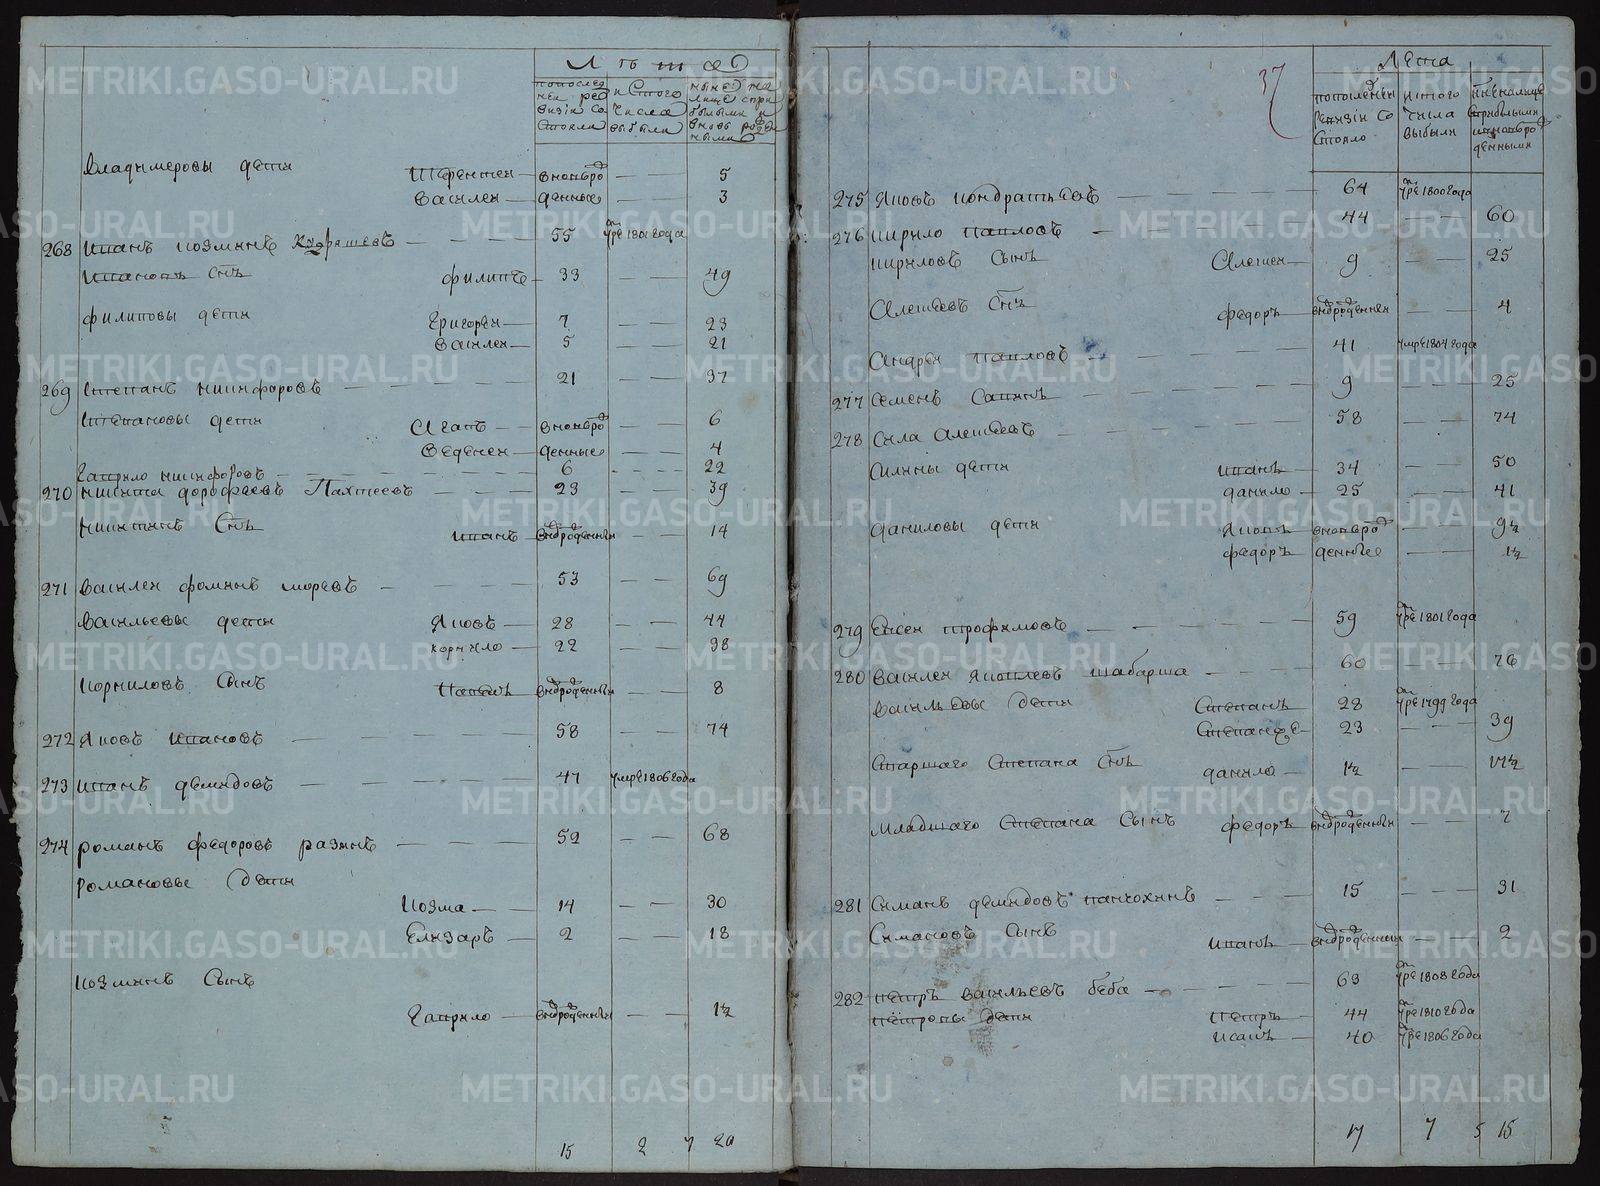 Лѣта
попослед
ней реви
визiи со
стояло
истого
числа
выбыли
ныне на
лице спри
былыми и
вновь рожд
ными
Владимеровы дети Терентей — вновьро — — 5
Василей — денные — — 3
268 Иванъ Козминъ Кудряшевъ — — — 55 умре 1801 года
Ивановъ Снъ Филипъ — 33 — — 49
Филиповы дети Григорей — 7 — — 23
Василей — 5 — — 21
269 Степанъ Никифоровъ — — — 21 — — 37
Степановы дети Агапъ — вновьро — — 6
Веденей — денные — — 4
Гаврило Никифоровъ — — — 6 — — 22
270 Никита Дорофеевъ Пахтеевъ — — — 23 — — 39
Никитинъ Снъ Иванъ — внброденный — — 14
271 Василей Фоминъ Моревъ — — — 53 — — 69
Васильевы дети Яковъ — 28 — — 44
Корнило — 22 — — 38
Корниловъ Сынъ Павелъ — внброденный — — 8
272 Яковъ Ивановъ — — — 58 — — 74
273 Иванъ Демидовъ — — — 47 умре 1806 года
274 Романъ Федоровъ Разинъ — — — 52 — — 68
Романовы Дети
Козма — 14 — — 30
Елизаръ — 2 — — 18
Козминъ Сынъ
Гаврило — внброденный — — 1½
15 2 7 20
37
Лета
попоследней
ревизiи со
стояло
истого
числа
выбыли
ныне налице
сприбылыми
ивновьро
денными
275 Яковъ Кондратьевъ — — — 64 умре 1800 года
276 Кирило Павловъ — — — 44 — — 60
Кириловъ Сынъ Алексей — 9 — — 25
Алексеевъ Снъ Федоръ — внброденней — — 4
Андрей Павловъ — — — 41 умре 1804 года
277 Семенъ Савинъ — — — 9 — — 25
278 Сила Алексеевъ — — — 58 — — 74
Силины дети Иванъ — 34 — — 50
Данило — 25 — — 41
Даниловы дети Яковъ — вновьро — — 9½
Федоръ — денные — — 1½
279 Евсей Трофимовъ — — — 59 умре 1801 года
280 Василей Яковлевъ Шабарша — — — 60 — — 76
Васильевы Дети Степанъ — 28 умре 1799 года
Степан же — 23 — — 39
Старшаго Степана Снъ Данило — 1½ — — 17½
Младшаго Степана Сынъ Федоръ — внброденный — — 7
281 Симанъ Демидовъ Панчохинъ — — — 15 — — 31
Симановъ Сынъ Иванъ — внброденный — — 2
282 Петръ Васильевъ Беба — — — 63 умре 1808 года
Петровы Дети Петръ — 44 умре 1810 года
Исакъ — 40 умре 1806 года
17 7 5 15
METRIKI.GASO-URAL.RU